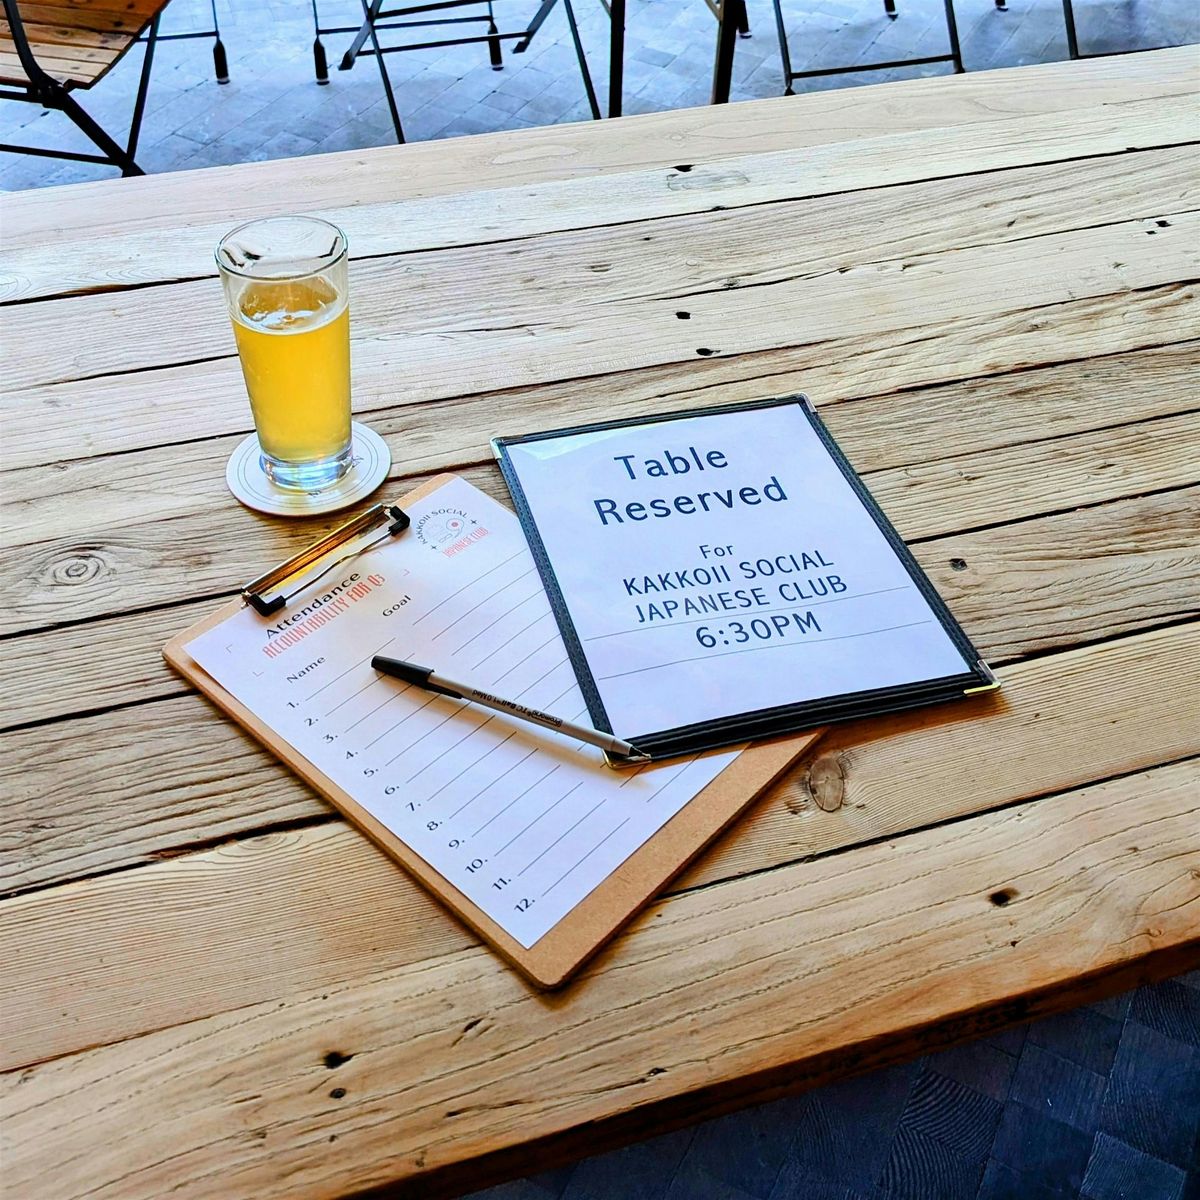 Table
Reserved
For
KAKKOII SOCIAL
JAPANESE CLUB
6:30PM
KAKKOII SOCIAL
JAPANESE CLUB
Attendance
ACCOUNTABILITY FOR Q3
Name
Goal
1.
2.
3.
4.
5.
6.
7.
8.
9.
10.
11.
12.